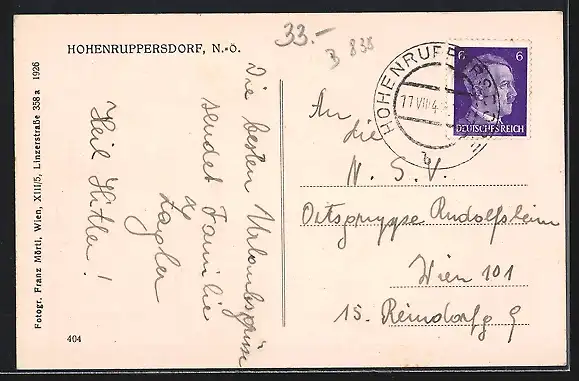 33.-
B 838
HOHENRUPPERSDORF, N.-Ö.
Die besten Urlaubsgrüsse
sendet Familie
Zargler
Heil Hitler!
Fotogr. Franz Mörtl, Wien, XIII/5, Linzerstraße 358a 1926
404
HOHENRUPPERSDORF
17.VIII.4
b
6 6
DEUTSCHES REICH
An
die
N. S. V.
Ortsgruppe Rudolfsheim
Wien 101
15. Reindorfg 9